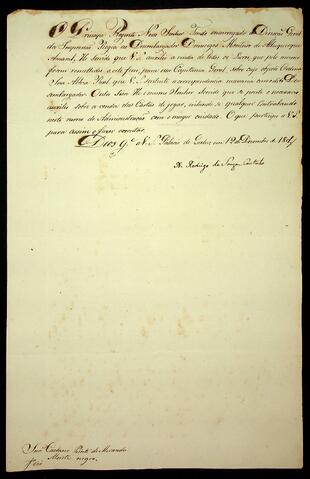 O Principe Regente Nosso Senhor Tendo encarregado a Direcção Geral
da Impressão Regia ao Desembargador Domingos Monteiro de Albuquerque
Amaral, He servido que V. S. auxilie a venda de todos os Livros, que pelo mesmo
forem remettidos a este fim, para essa Capitania Geral, sobre cujo objecto Ordena
Sua Alteza Real que V. S. sustente a correspondencia necessaria com o dito De
sembargador. Outro Sim He o mesmo Senhor Servido que se preste o necessario
auxilio sobre a venda das Cartas de jogar, evitando se qualquer Contrabando
neste ramo de Administração com o mayor cuidado. O que participo a V. S.
para assim o fazer executar.
Deos g.e a V. S. Palacio de Queluz em 12 de Dezembro de 1801
D. Rodrigo de Souza Coutinho
Snr. Caetano Pinto de Miranda
Monte negro.